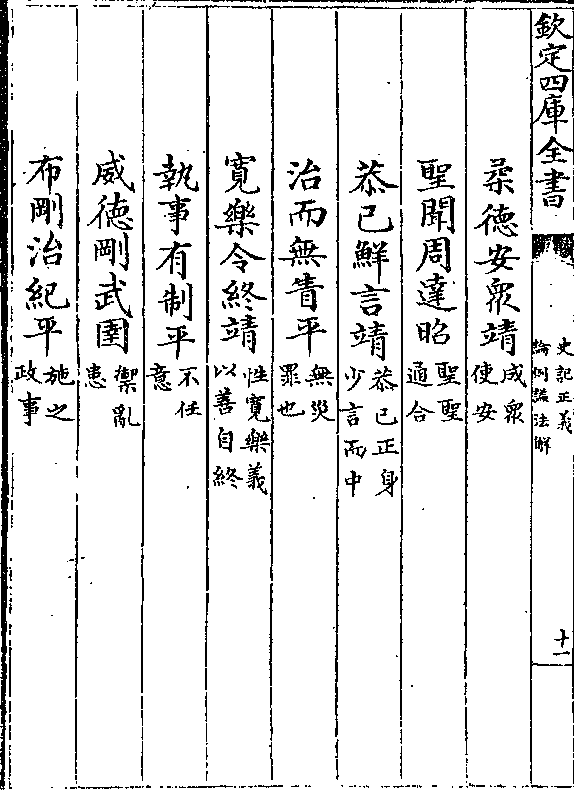 欽定四庫全書
史記正義
論例諡法解
十一
柔德安衆靖成衆使安
聖聞周達昭聖聖通合
恭己鮮言靖恭己正身少言而中
治而無眚平無災罪也
寛樂令終靖性寛樂義以善自終
執事有制平不任意
威德剛武圉禦亂患
布剛治紀平施之政事